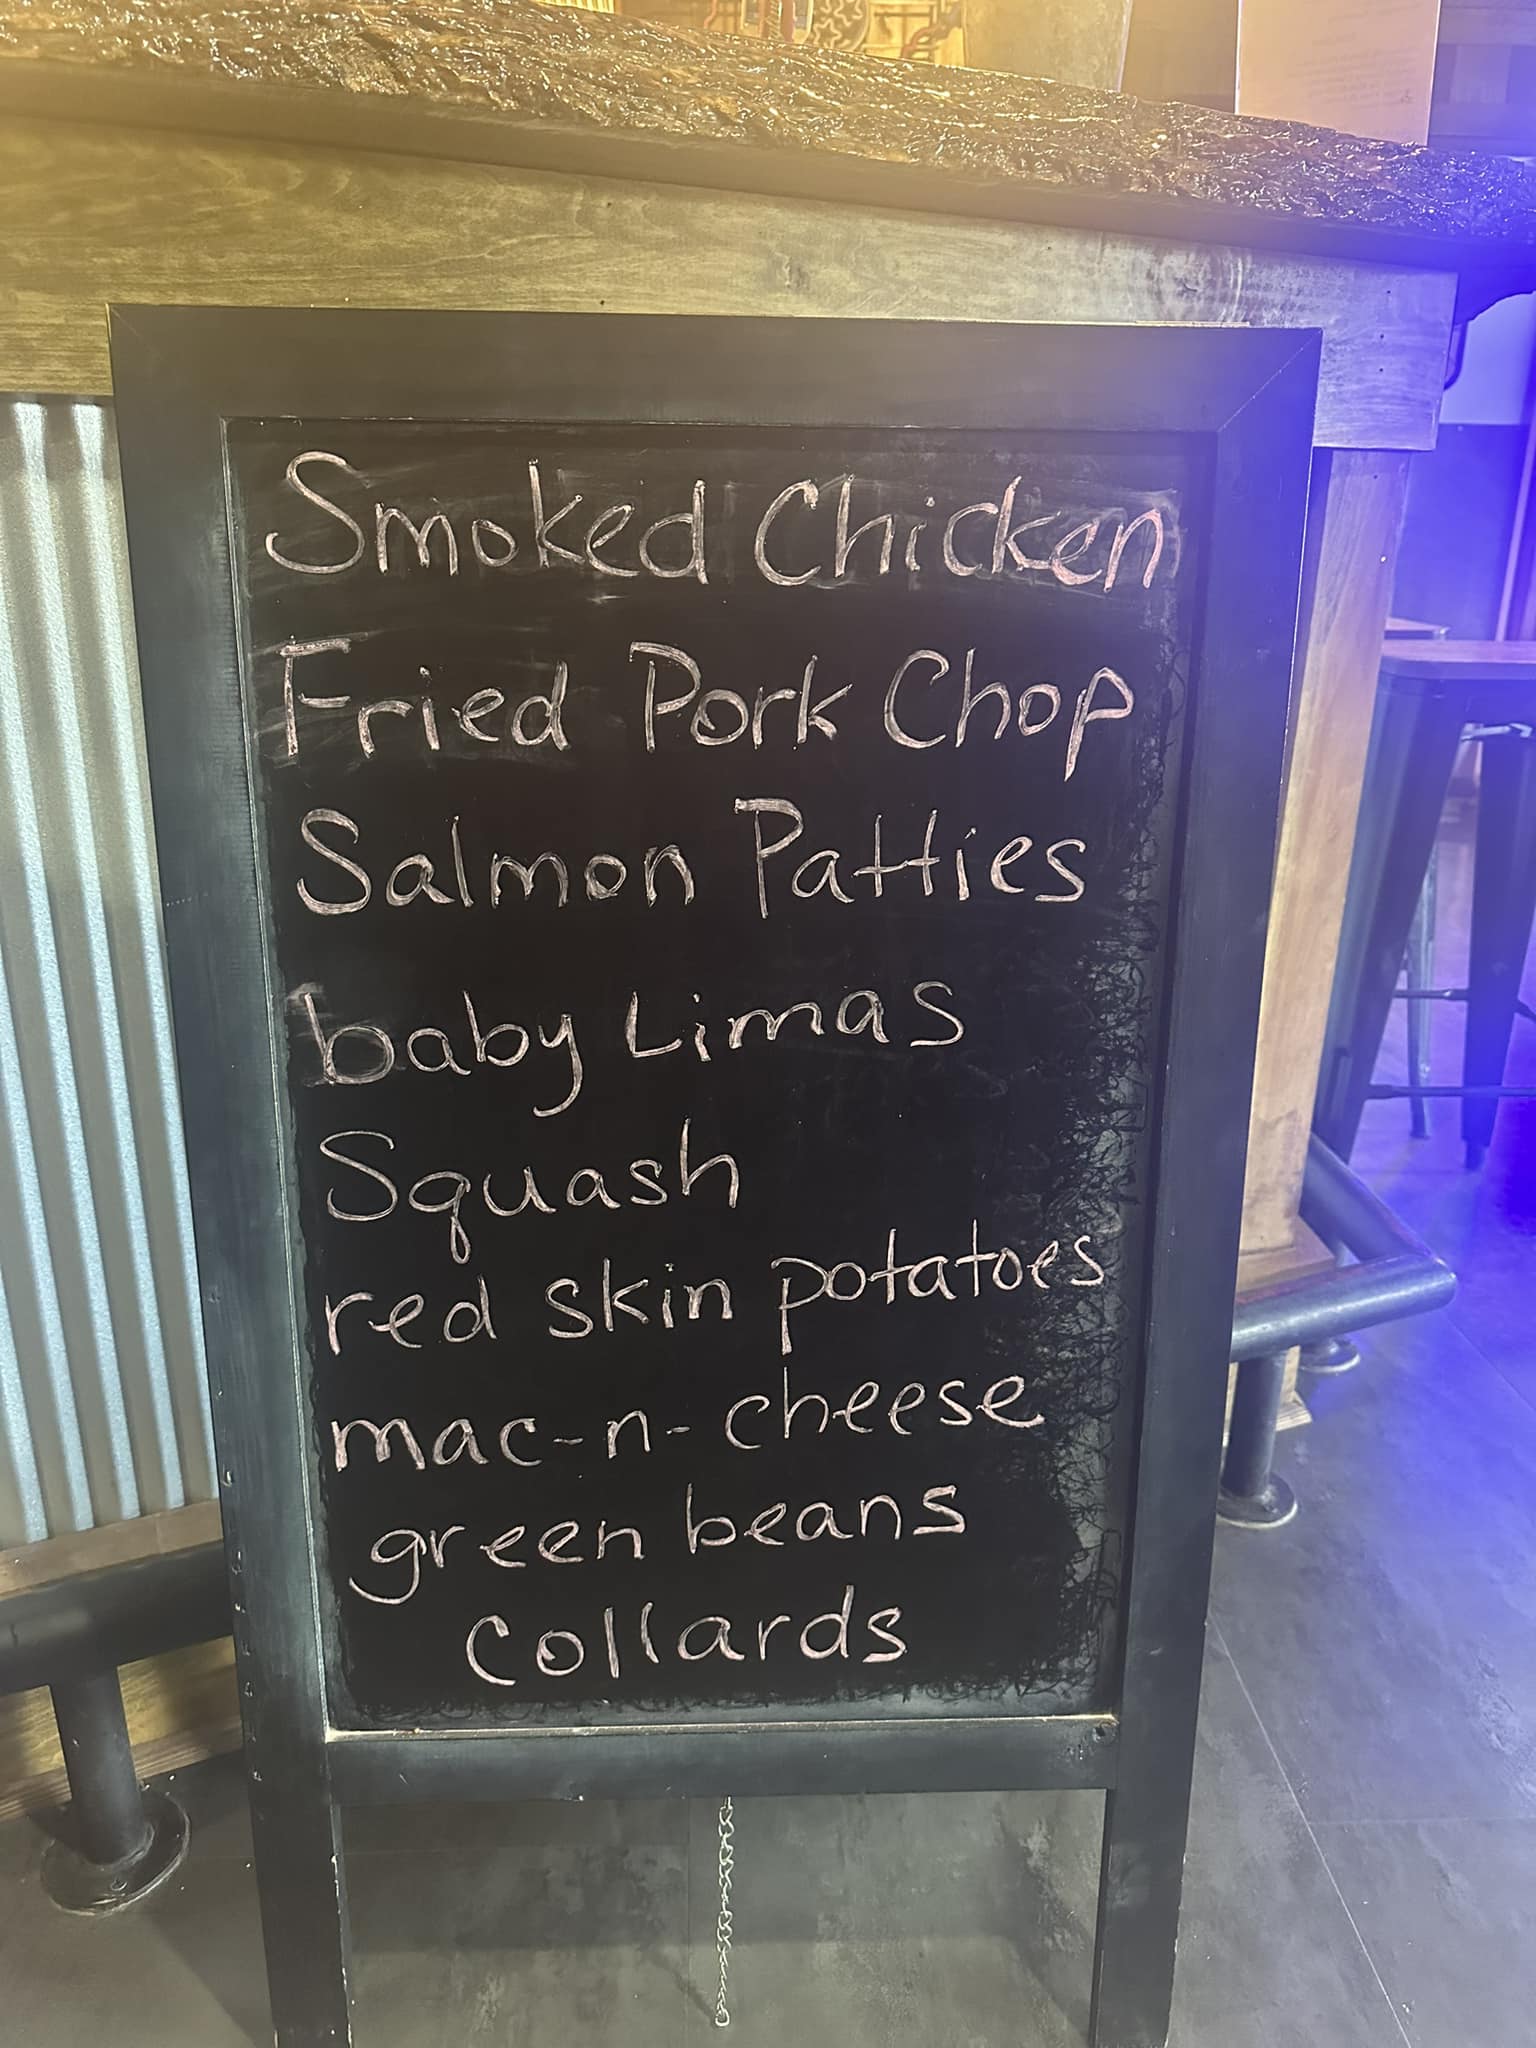 Smoked Chicken
Fried Pork Chop
Salmon Patties
baby Limas
Squash
red skin potatoes
mac-n-cheese
green beans
Collards